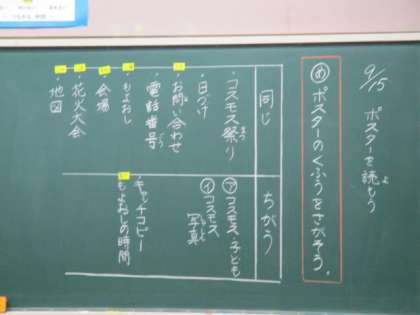 9/15 ポスターを読もう
よ
めポスターのくふうをさがそう。
同じ
・コスモス祭り
まつ
・日づけ
・お問い合わせ
・電話番号
・もよおし
・会場
・花火大会
・地図
ちがう
アコスモス、子ども
イコスモス
写真
・キャッチコピー
もよおしの時間